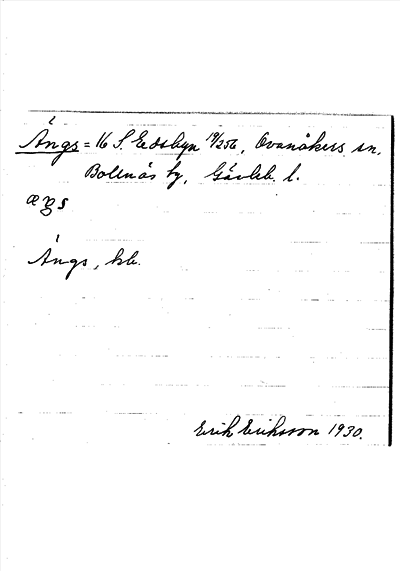 Ängs = 16 S. Edsbyn 19/256, Ovanåkers sn,
Bollnäs tg, Gävleb. l.
æŋs
Ängs, hb.
Erik Eriksson 1930.